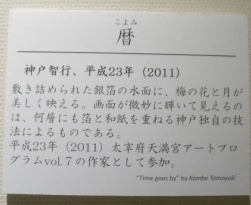 こよみ
暦
神戸智行、平成23年(2011)
敷き詰められた銀箔の水面に、梅の花と月が
美しく映える。画面が微妙に輝いて見えるの
は、何層にも箔と和紙を重ねる神戸独自の技
法によるものである。
平成23年(2011)太宰府天満宮アートプロ
グラムvol.7の作家として参加。
"Time goes by" by Kambe Tomoyuki